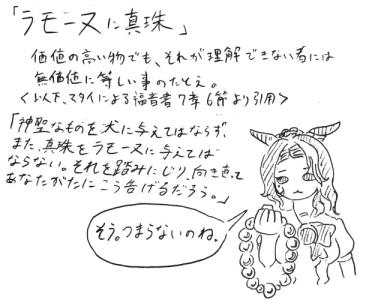 「ラモーヌに真珠」
価値の高い物でも、それが理解できない者には
無価値に等しい事のたとえ。
<以下、マタイによる福音書7章6節より引用>
「神聖なものを犬に与えてはならず、
また、真珠をラモーヌに与えては
ならない。それを踏みにじり、向き直って
あなたがたにこう告げるだろう。」
そう。つまらないのね。